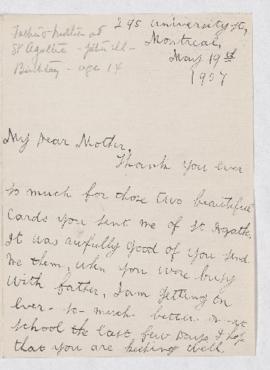 Father & Mother at
St Agathe - John ill -
Birthday - age 14
295 University St,
Montreal,
May 19th
1907
My Dear Mother,
Thank you ever
so much for those two beautiful
Cards you sent me of St Agathe.
It was awfully good of you send
me them, when you were busy
with father, I am getting on
ever - so - much better in at
school the last few days I hope
that you are keeping well